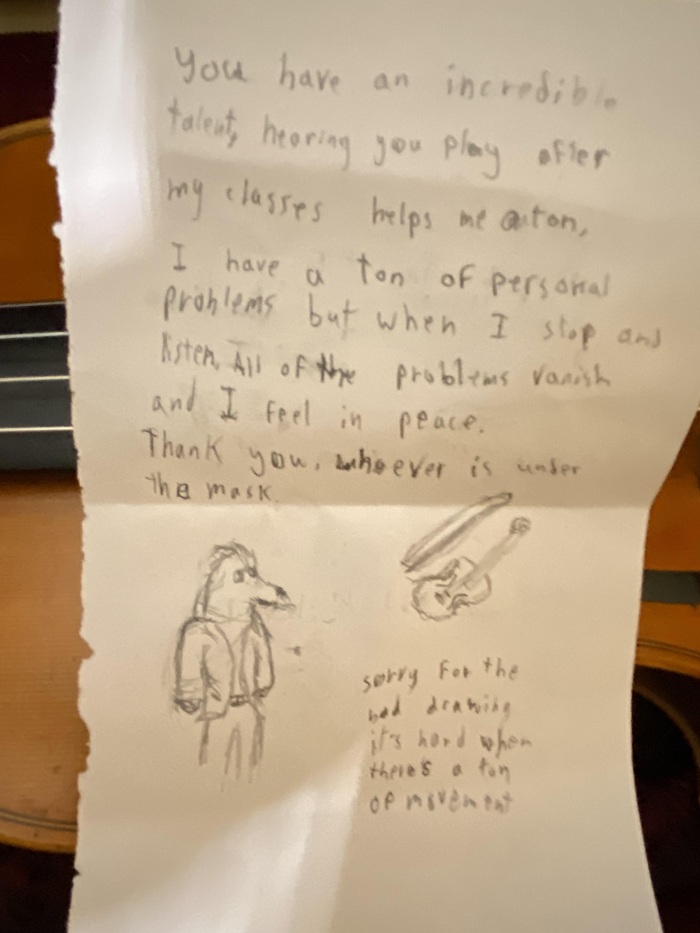 You have an incredible
talent, hearing you play after
my classes helps me a ton,
I have a ton of personal
problems but when I stop and
listen, All of the problems vanish
and I feel in peace.
Thank you, whoever is under
the mask.
sorry for the
bad drawing
it's hard when
there's a ton
of movement